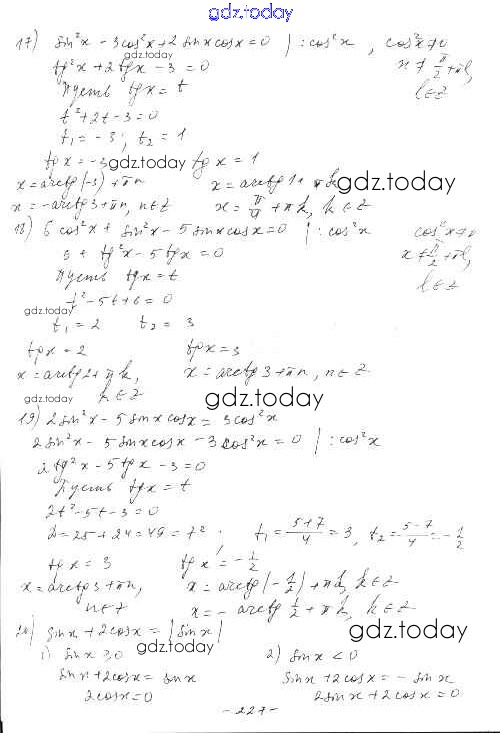 gdz.today
17) sin²x - 3cos²x + 2 sinxcosx = 0 | : cos²x , cos²x ≠ 0
gdz.today
tg²x + 2tgx - 3 = 0 x ≠ π/2 + πl,
Пусть tgx = t l ∈ Z
t² + 2t - 3 = 0
t₁ = -3; t₂ = 1
tgx = -3 gdz.today tgx = 1
x = arctg(-3) + πn x = arctg1 + πk gdz.today
x = -arctg3 + πn, n ∈ Z x = π/4 + πk, k ∈ Z
18) 6cos²x + sin²x - 5sinxcosx = 0 | : cos²x cos²x ≠ 0
gdz.today
6 + tg²x - 5tgx = 0 x ≠ π/2 + πl,
Пусть tgx = t l ∈ Z
t² - 5t + 6 = 0
gdz.today
t₁ = 2 t₂ = 3
tgx = 2 tgx = 3
x = arctg2 + πk, x = arctg3 + πn, n ∈ Z
gdz.today k ∈ Z gdz.today
19) 2sin²x - 5sinxcosx = 3cos²x
2sin²x - 5sinxcosx - 3cos²x = 0 | : cos²x
2tg²x - 5tgx - 3 = 0
Пусть tgx = t
2t² - 5t - 3 = 0
D = 25 + 24 = 49 = 7² ; t₁ = (5+7)/4 = 3, t₂ = (5-7)/4 = -1/2
tgx = 3 tgx = -1/2
x = arctg3 + πn, x = arctg(-1/2) + πk, k ∈ Z
n ∈ Z x = -arctg 1/2 + πk, k ∈ Z
20) sinx + 2cosx = |sinx| gdz.today
1) sinx ≥ 0 gdz.today 2) sinx < 0
sinx + 2cosx = sinx sinx + 2cosx = -sinx
2cosx = 0 2sinx + 2cosx = 0
- 227 -